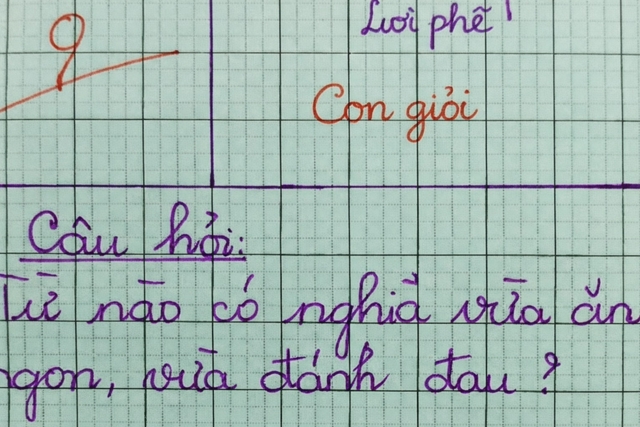 9
Lười phế!
Con giỏi
Câu hỏi:
Từ nào có nghĩa vừa ăn
ngon, vừa đánh đau?